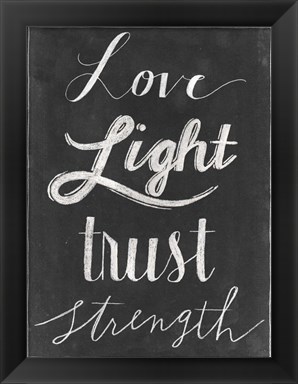 Love
Light
trust
strength